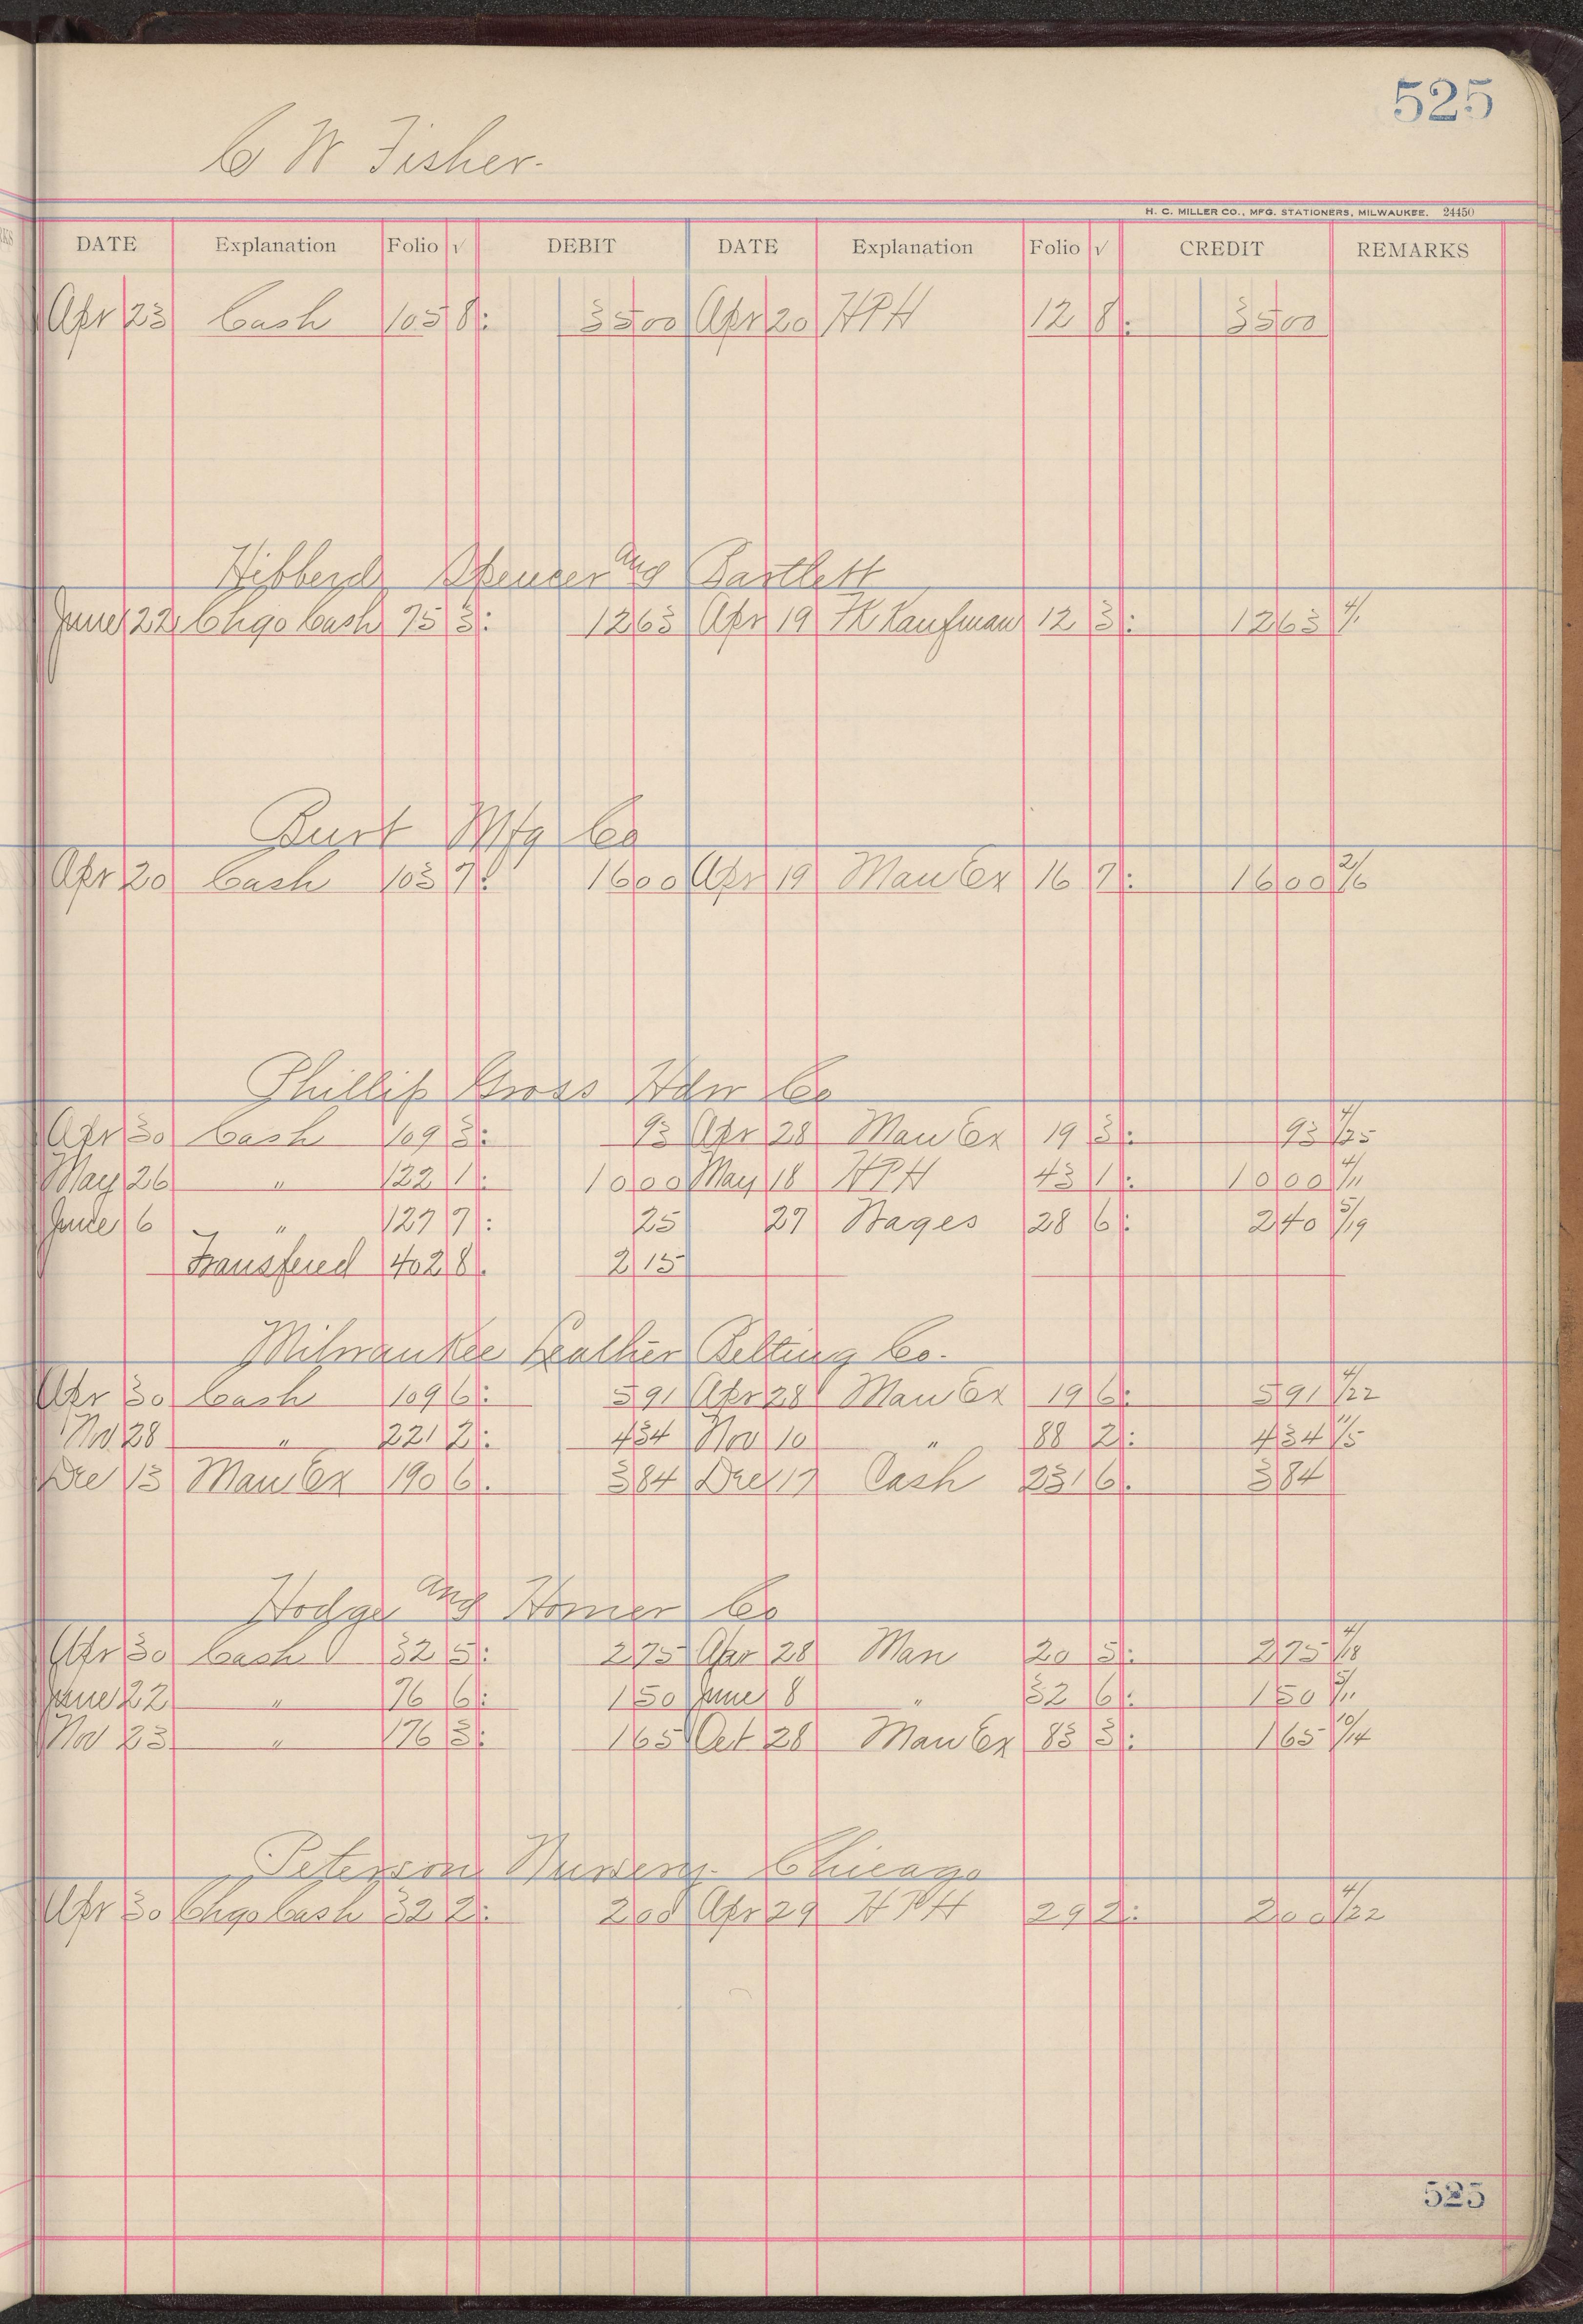 525
C W Fisher.
H. C. MILLER CO., MFG. STATIONERS, MILWAUKEE. 24450
DATE Explanation Folio √ DEBIT DATE Explanation Folio √ CREDIT REMARKS
Apr 23 Cash 105 8: 3500 Apr 20 HPH 12 8: 3500
Hibberd Spencer and Bartlett
June 22 Chgo Cash 75 3: 1263 Apr 19 HKaufman 12 3: 1263
Burt Mfg Co
Apr 20 Cash 103 7: 1600 Apr 19 Man Ex 16 7: 1600 2/6
Phillip Gross Hdw Co
Apr 30 Cash 109 3: 93 Apr 28 Man Ex 19 3: 93 4/25
May 26 " 122 1: 1000 May 18 HPH 43 1: 1000 4/11
June 6 " 127 7: 25 27 Wages 28 6: 240 5/19
Transfered 402 8. 215
Milwaukee Leather Belting Co.
Apr 30 Cash 109 6: 591 Apr 28 Man Ex 19 6: 591 4/22
Nov 28 " 221 2: 434 Nov 10 " 88 2: 434 11/5
Dec 13 Man Ex 190 6. 384 Dec 17 Cash 231 6. 384
Hodge and Homer Co
Apr 30 Cash 32 5: 275 Apr 28 Man 20 5: 275 4/18
June 22 " 76 6: 150 June 8 " 32 6: 150 5/11
Nov 23 " 176 3: 165 Oct 28 Man Ex 83 3: 165 10/14
Peterson Nursery. Chicago
Apr 30 Chgo Cash 32 2: 200 Apr 29 HPH 29 2: 200 4/22
525